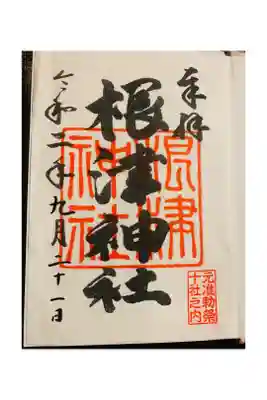 奉拝
根津神社
令和二年九月二十一日
根津神社
元准勅祭
十社之内